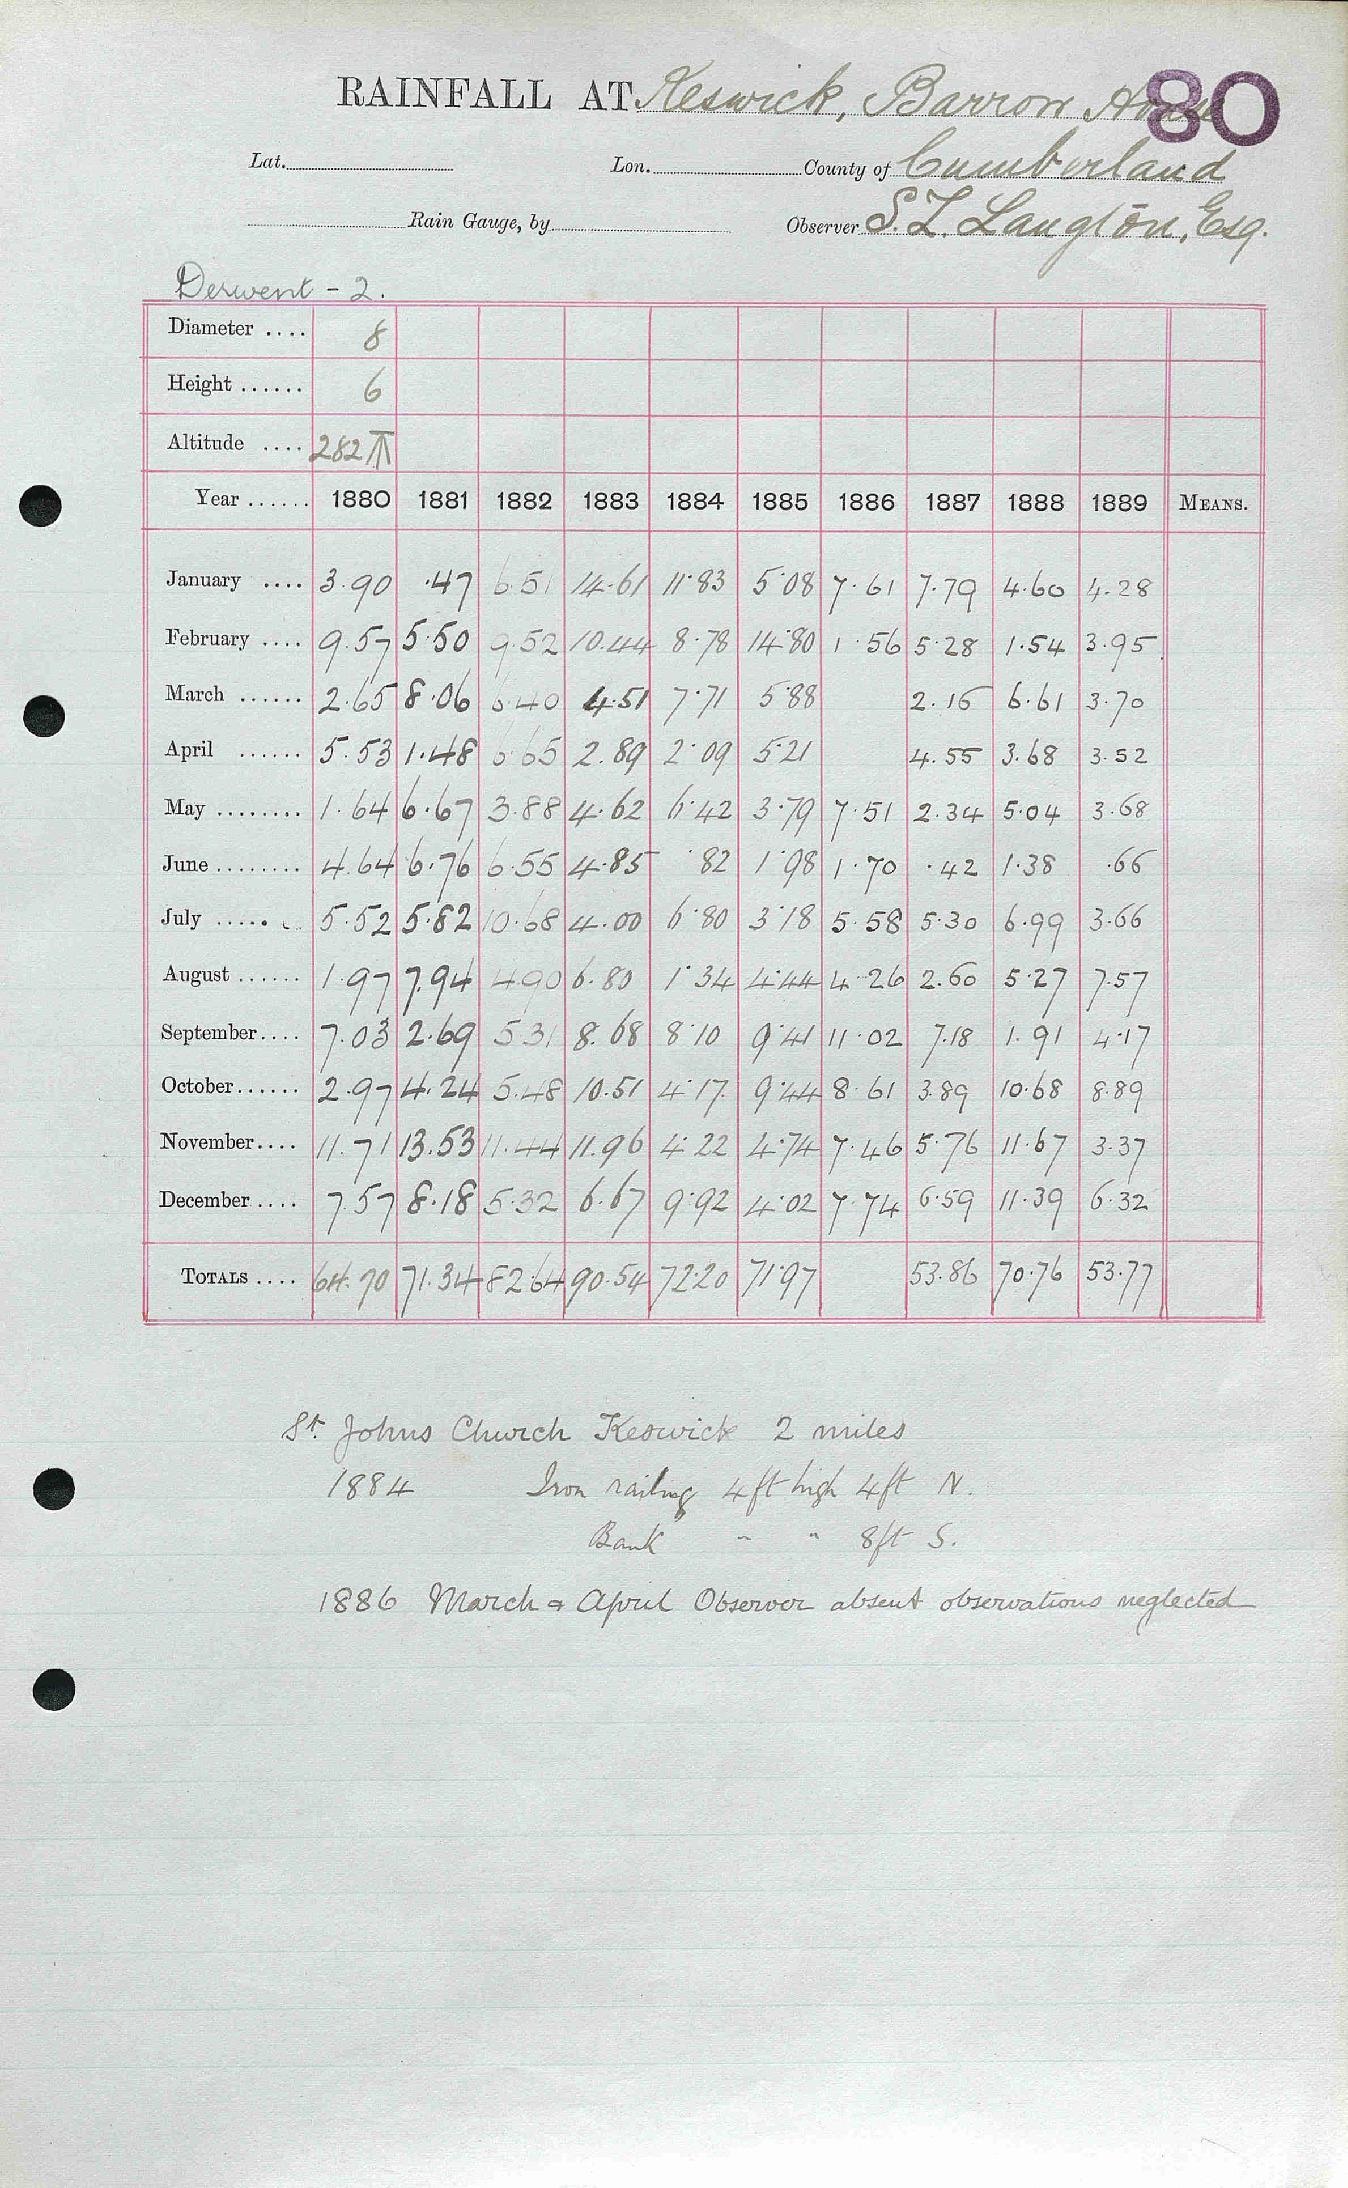 RAINFALL AT Keswick, Barrow House
80
Lat. Lon. County of Cumberland
Rain Gauge, by Observer S. Z. Langton, Esq.
Derwent - 2.
Diameter .... 8
Height ...... 6
Altitude .... 282
Year ...... 1880 1881 1882 1883 1884 1885 1886 1887 1888 1889 MEANS.
January .... 3.90 .47 6.51 14.61 11.83 5.08 7.61 7.79 4.60 4.28
February .... 9.57 5.50 9.52 10.44 8.78 14.80 1.56 5.28 1.54 3.95
March ...... 2.65 8.06 6.40 4.51 7.71 5.88 2.16 6.61 3.70
April ...... 5.53 1.48 6.65 2.89 2.09 5.21 4.55 3.68 3.52
May ........ 1.64 6.67 3.88 4.62 6.42 3.79 7.51 2.34 5.04 3.68
June ........ 4.64 6.76 6.55 4.85 .82 1.98 1.70 .42 1.38 .66
July ...... 5.52 5.82 10.68 4.00 6.80 3.18 5.58 5.30 6.99 3.66
August ...... 1.97 7.94 4.90 6.80 1.34 4.44 4.26 2.60 5.27 7.57
September .... 7.03 2.69 5.31 8.68 8.10 9.41 11.02 7.18 1.91 4.17
October ...... 2.97 4.24 5.48 10.51 4.17 9.44 8.61 3.89 10.68 8.89
November .... 11.71 13.53 11.44 11.96 4.22 4.74 7.46 5.76 11.67 3.37
December .... 7.57 8.18 5.32 6.67 9.92 4.02 7.74 6.59 11.39 6.32
TOTALS .... 64.70 71.34 82.64 90.54 72.20 71.97 53.86 70.76 53.77
St. Johns Church Keswick 2 miles
1884 Iron railing 4ft high 4ft N.
Bank " " 8ft S.
1886 March & April Observer absent observations neglected